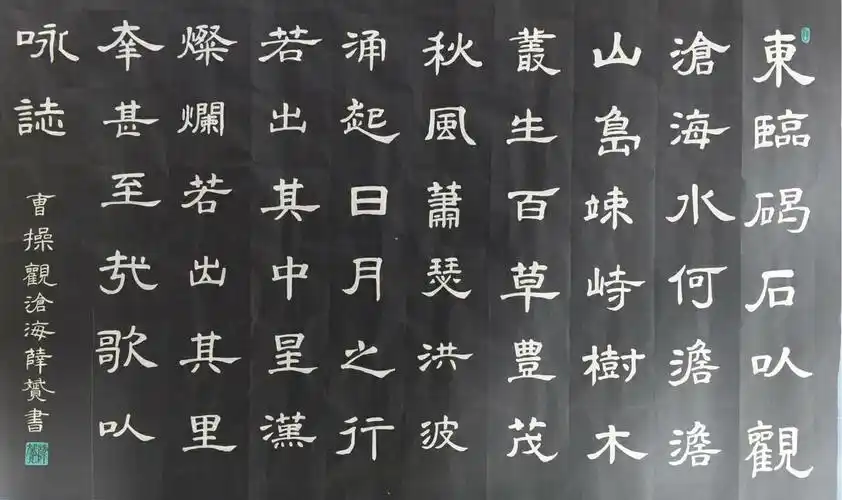 東臨碣石㕥觀
滄海水何澹澹
山島竦峙樹木
叢生百草豊茂
秋風蕭瑟洪波
涌起日月之行
若出其中星漢
燦爛若出其里
幸甚至哉歌㕥
咏誌
曹操觀滄海薛贇書